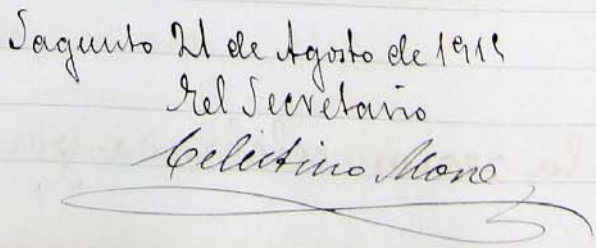 Sagunto 21 de Agosto de 1915
El Secretario
Celestino Mone